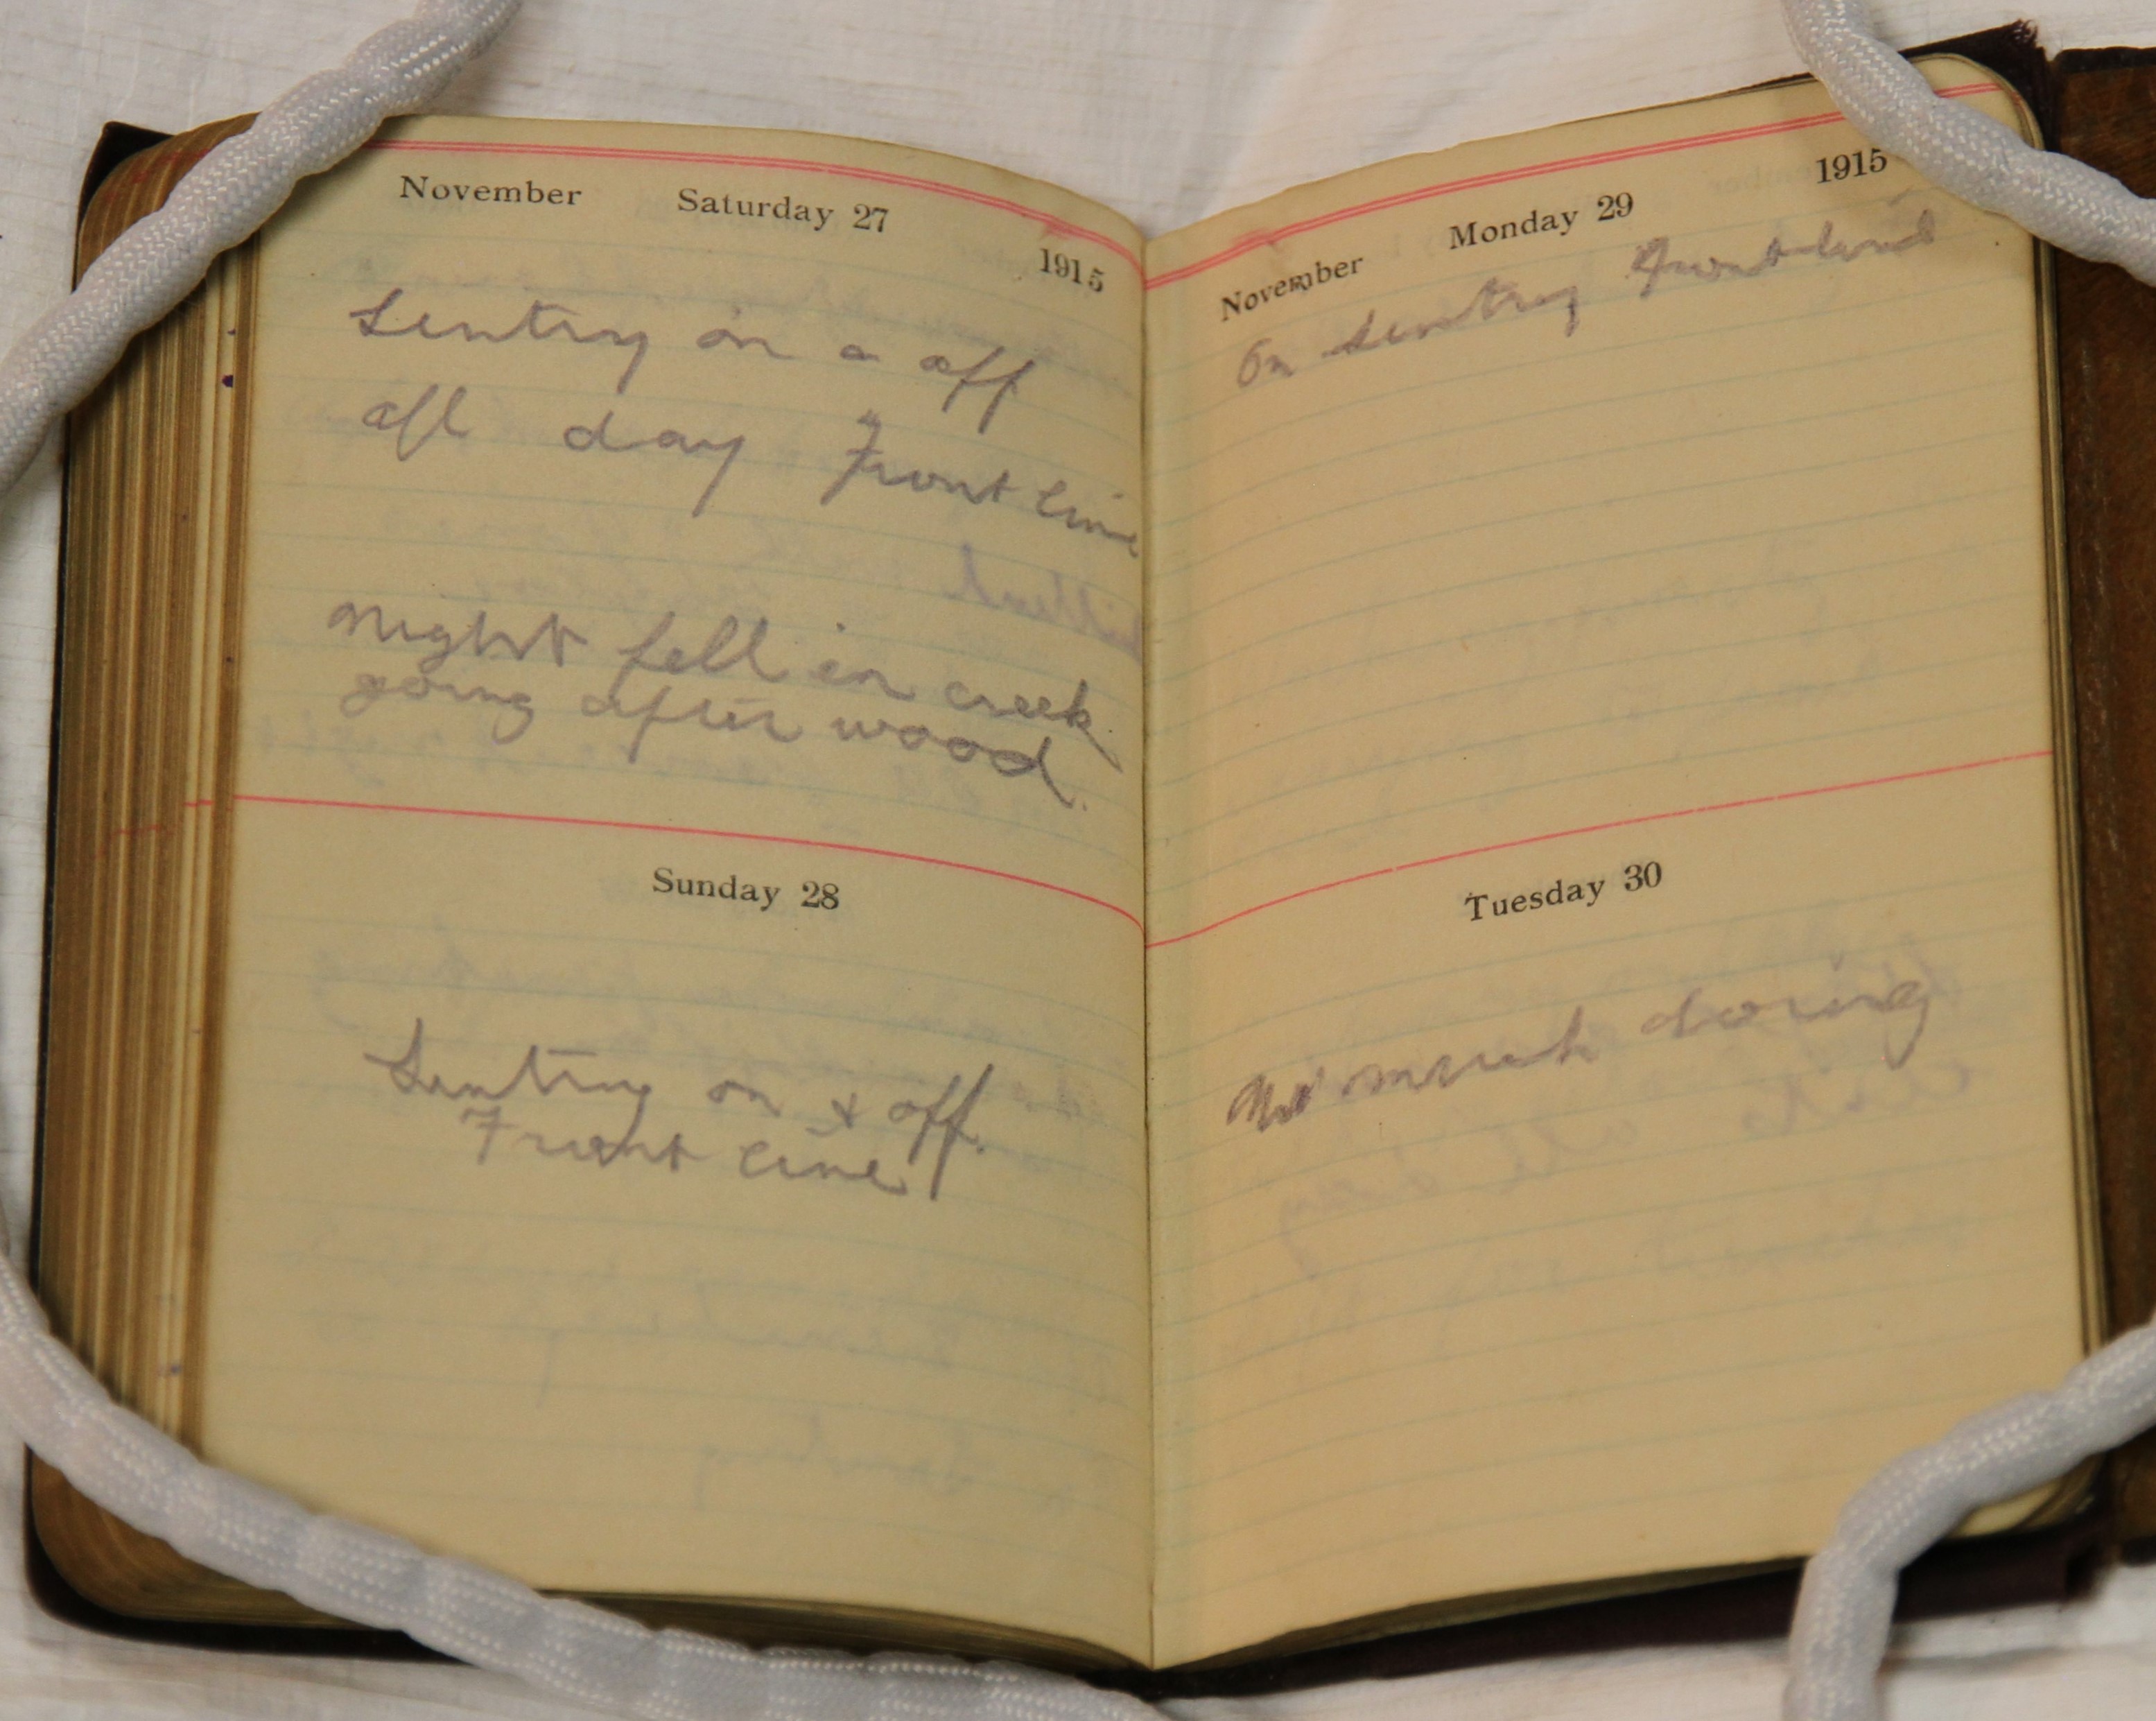 November Saturday 27 1915
Sentry on a off
all day Front line
Night fell in creek
going after wood.
Sunday 28
Sentry on & off.
Front line
November Monday 29 1915
On Sentry Front line
Tuesday 30
Not much doing